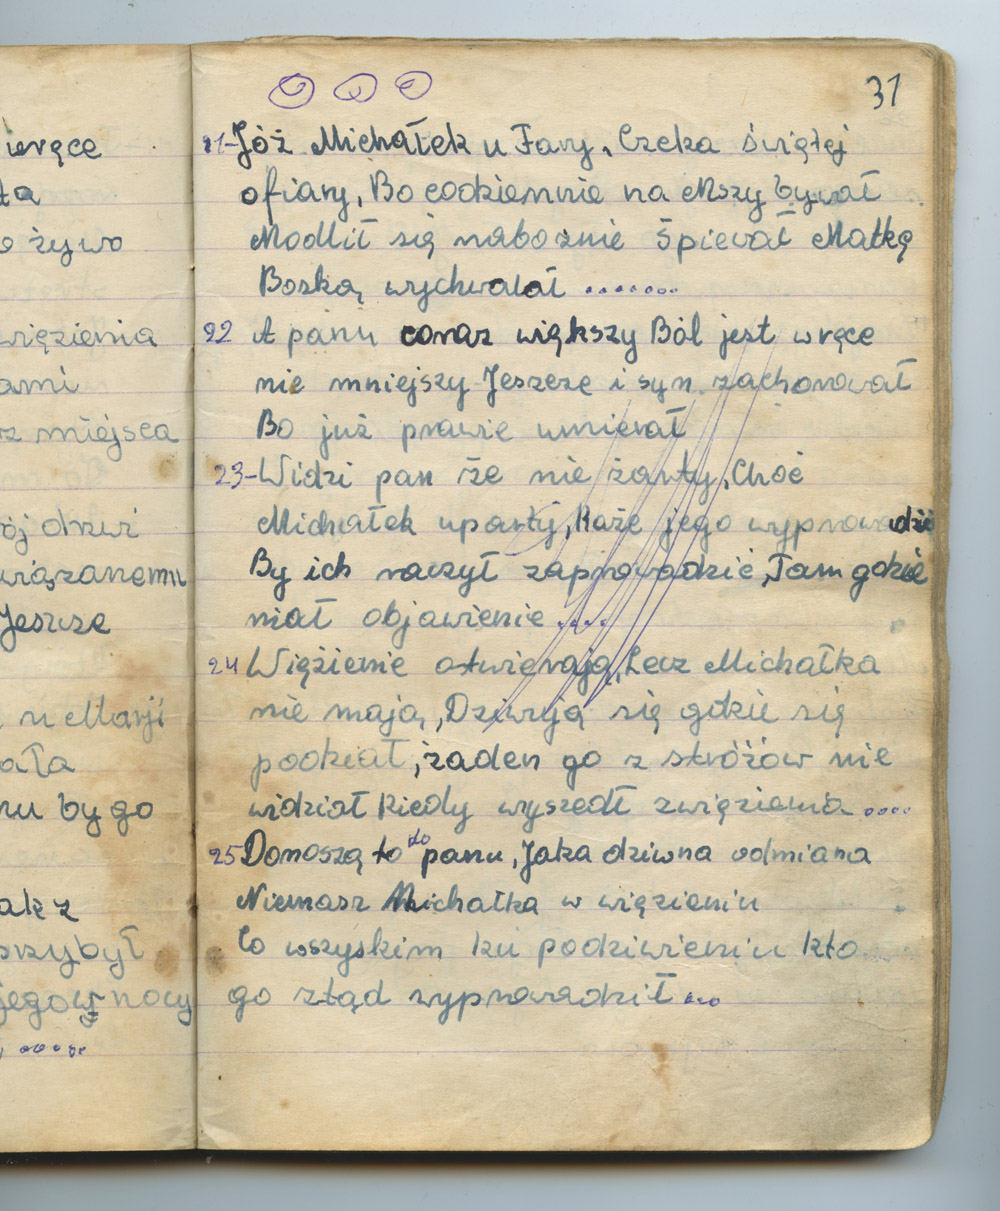 wręce
ta
o żywo
więzienia
ami
z miejsca
ój drzwi
wiązanemu
Jeszcze
u Marji
ała
nu by go
ak z
przybył
jego w nocy
.....
31
21-Jóż Michałek u Fary, Czeka świętej
ofiary, Bo codziennie na Mszy bywał
Modlił się nabożnie Śpiewał Matkę
Boską wychwalał .......
22 A panu coraz większy Ból jest w ręce
nie mniejszy Jeszcze i syn zachorował
Bo już prawie umierał
23-Widzi pan że nie żarty, Choć
Michałek uparty, Każe jego wyprowadzić
By ich raczył zaprowadzić, Tam gdzie
miał objawienie ....
24 Więzienie otwierają, Lecz Michałka
nie mają, Dziwyją się gdzie się
podział, żaden go z stróżów nie
widział Kiedy wyszedł zwięzienia ....
25 Donoszą to do panu, Jaka dziwna odmiana
Niemasz Michałka w więzieniu
Co wszyskim ku podziwieniu kto
go ztąd wyprowadził ...